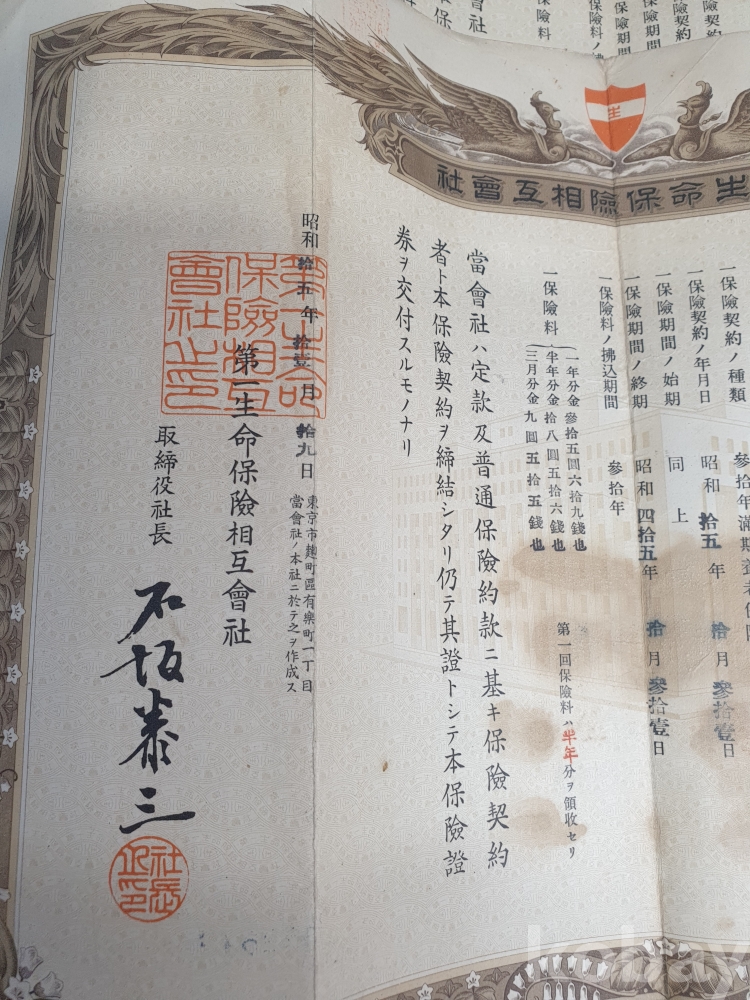 保險契約
保險期間
保險期間
保險料ノ
保險料
會社
生
生命保險相互會社
一保險契約ノ種類
參拾年滿期養老保險
一保險契約ノ年月日
昭和拾五年拾月參拾壹日
一保險期間ノ始期
同上
一保險期間ノ終期
昭和四拾五年拾月參拾壹日
一保險料ノ拂込期間
參拾年
一保險料
一年分金參拾五圓六拾九錢也
半年分金拾八圓五拾六錢也
三月分金九圓五拾五錢也
第一回保險料ハ半年分ヲ領收セリ
當會社ハ定款及普通保險約款ニ基キ保險契約
者ト本保險契約ヲ締結シタリ仍テ其證トシテ本保險證
券ヲ交付スルモノナリ
昭和拾五年拾壹月拾九日
東京市麹町區有樂町一丁目
當會社ノ本社ニ於テ之ヲ作成ス
第一生命保險相互會社
第一生命
保險相互
會社之印
取締役社長
石坂泰三
社長
之印
kobay